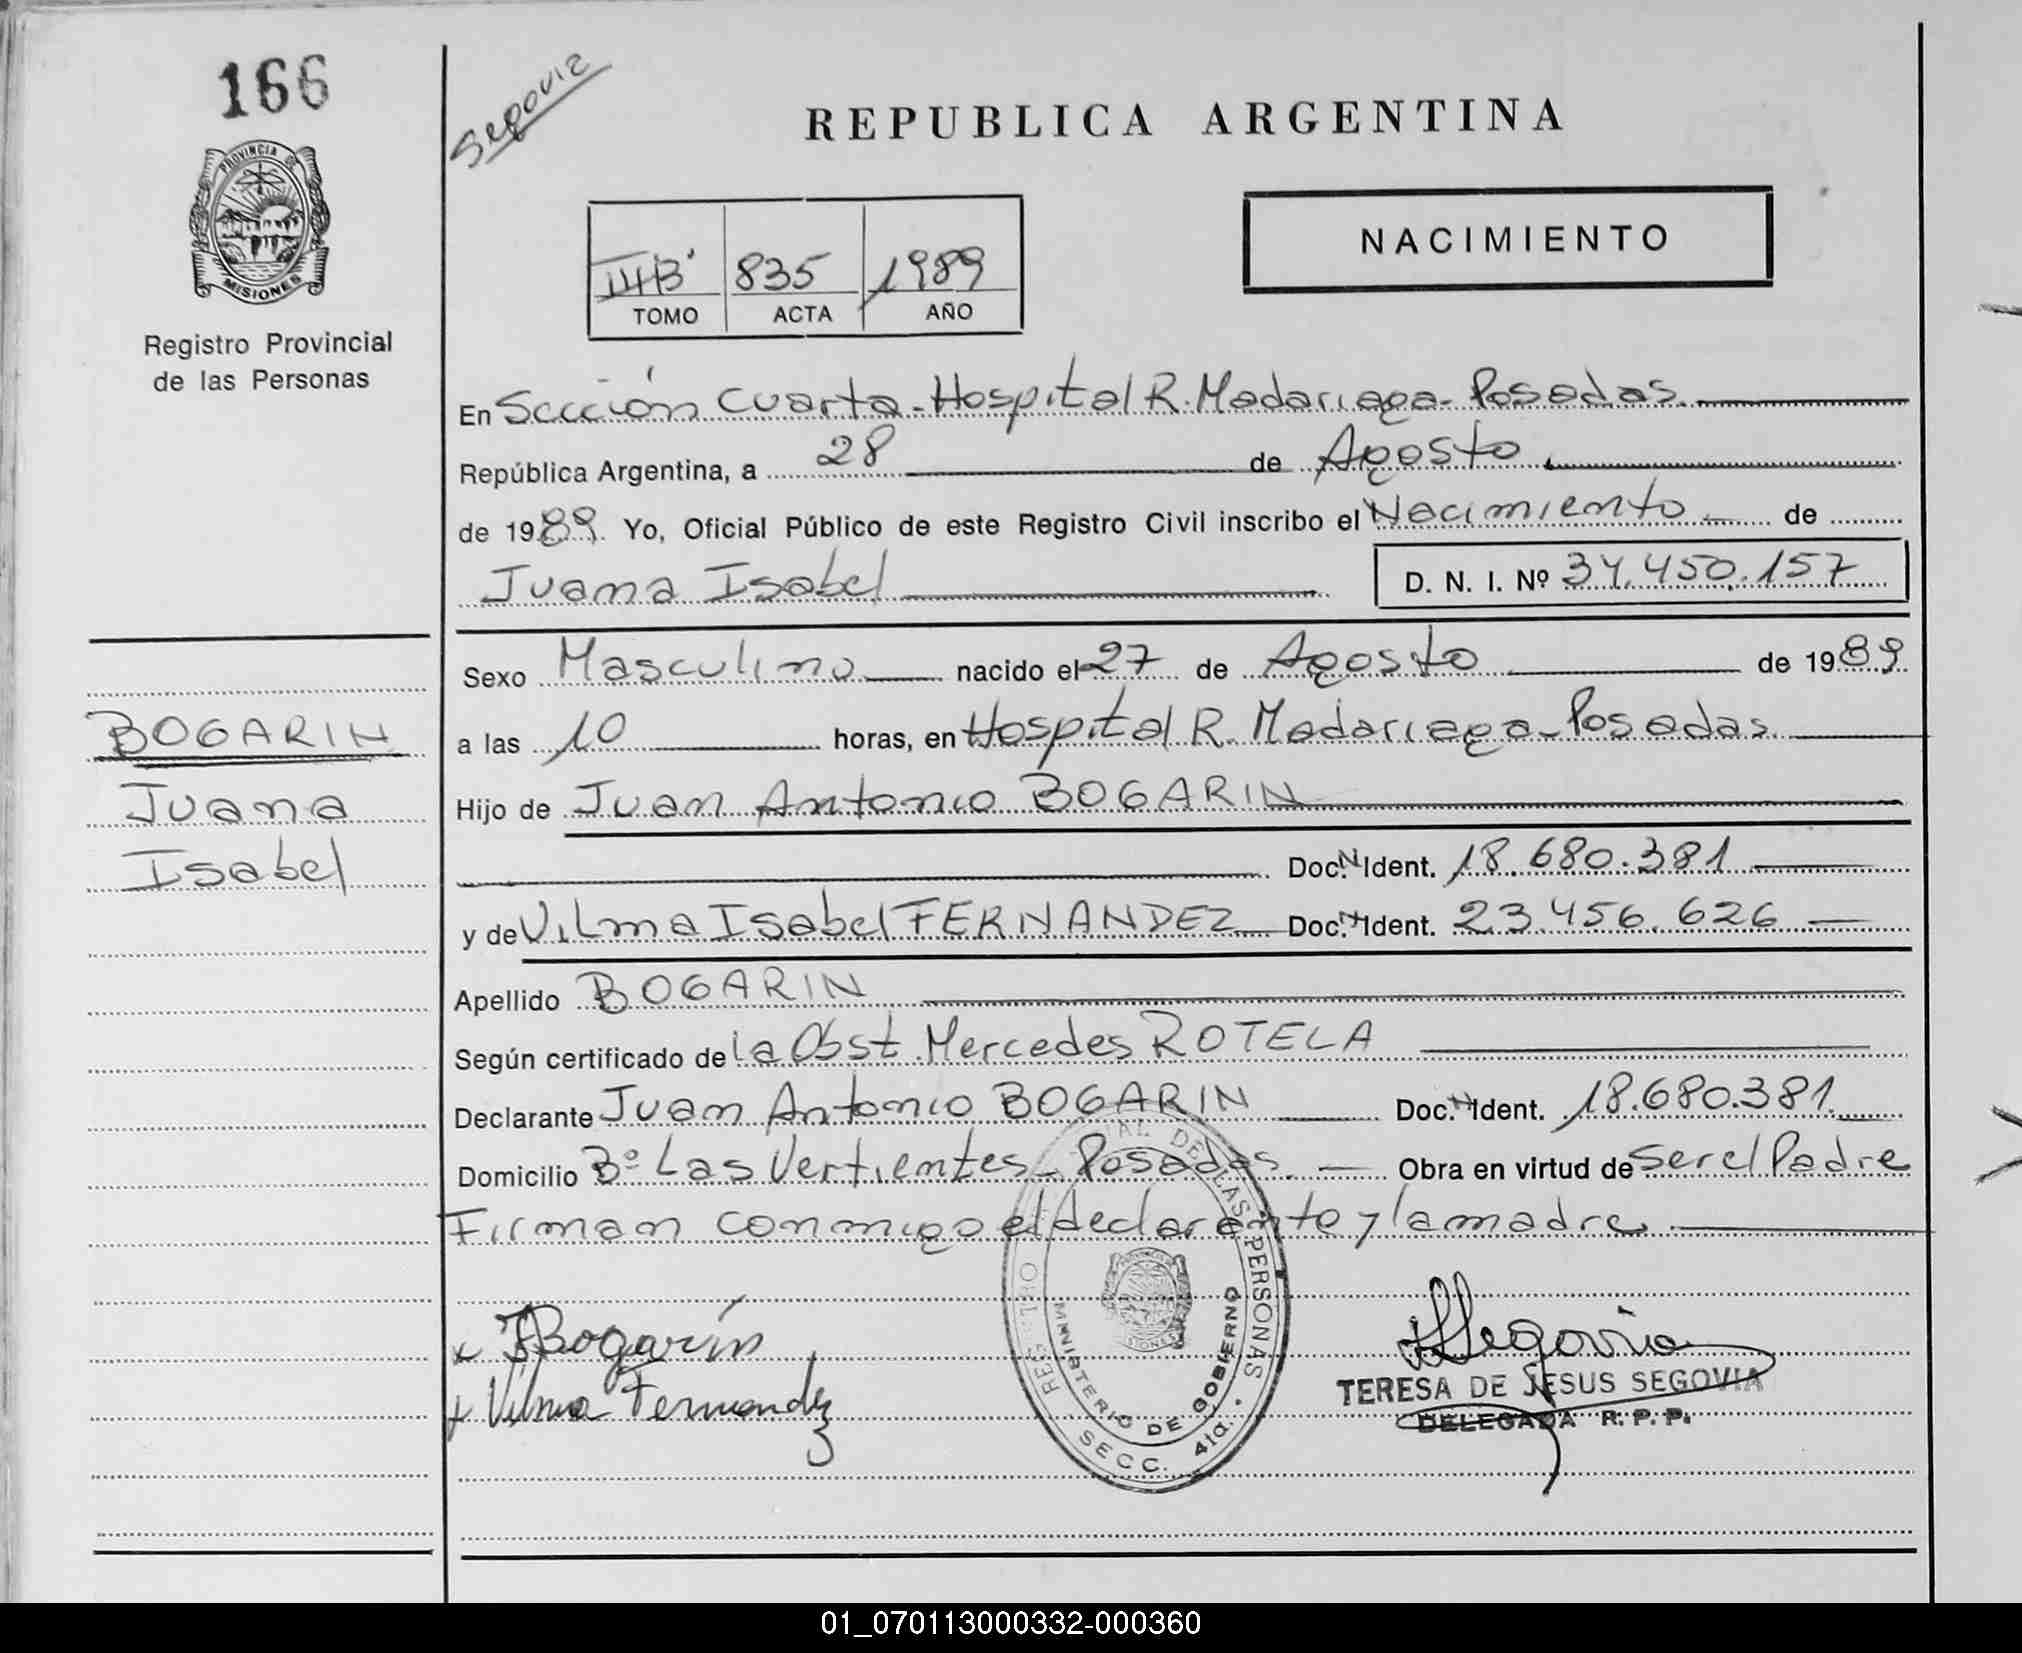 166
PROVINCIA DE
MISIONES
Registro Provincial
de las Personas
Segovia
REPUBLICA ARGENTINA
835 1989
TOMO ACTA AÑO
NACIMIENTO
En Sección Cuarta - Hospital R. Madariaga - Posadas.
República Argentina, a 28 de Agosto
de 1989. Yo, Oficial Público de este Registro Civil inscribo el Nacimiento de
Juana Isabel D. N. I. Nº 34.450.157
Sexo Masculino nacido el 27 de Agosto de 1989
a las 10 horas, en Hospital R. Madariaga - Posadas.
Hijo de Juan Antonio BOGARIN
Doc. N Ident. 18.680.381
y de Vilma Isabel FERNANDEZ Doc. N Ident. 23.456.626
Apellido BOGARIN
Según certificado de la Obst. Mercedes ROTELA
Declarante Juan Antonio BOGARIN Doc. N Ident. 18.680.381.
Domicilio Bº Las Vertientes - Posadas. Obra en virtud de ser el Padre
Firman conmigo el declarante y la madre.
BOGARIN
Juana
Isabel
x JBogarín
x Vilma Fernandez
REGISTRO AL DE LAS PERSONAS
MINISTERIO DE GOBIERNO
SECC. 4ta.
Segovia
TERESA DE JESUS SEGOVIA
DELEGADA R. P. P.
01_070113000332-000360